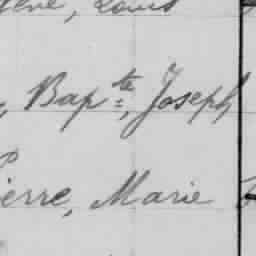 Louis
, Bapte, Joseph
ierre, Marie